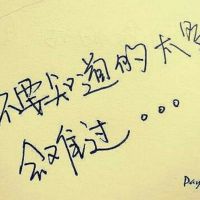 不要知道的太明
会难过...
Day